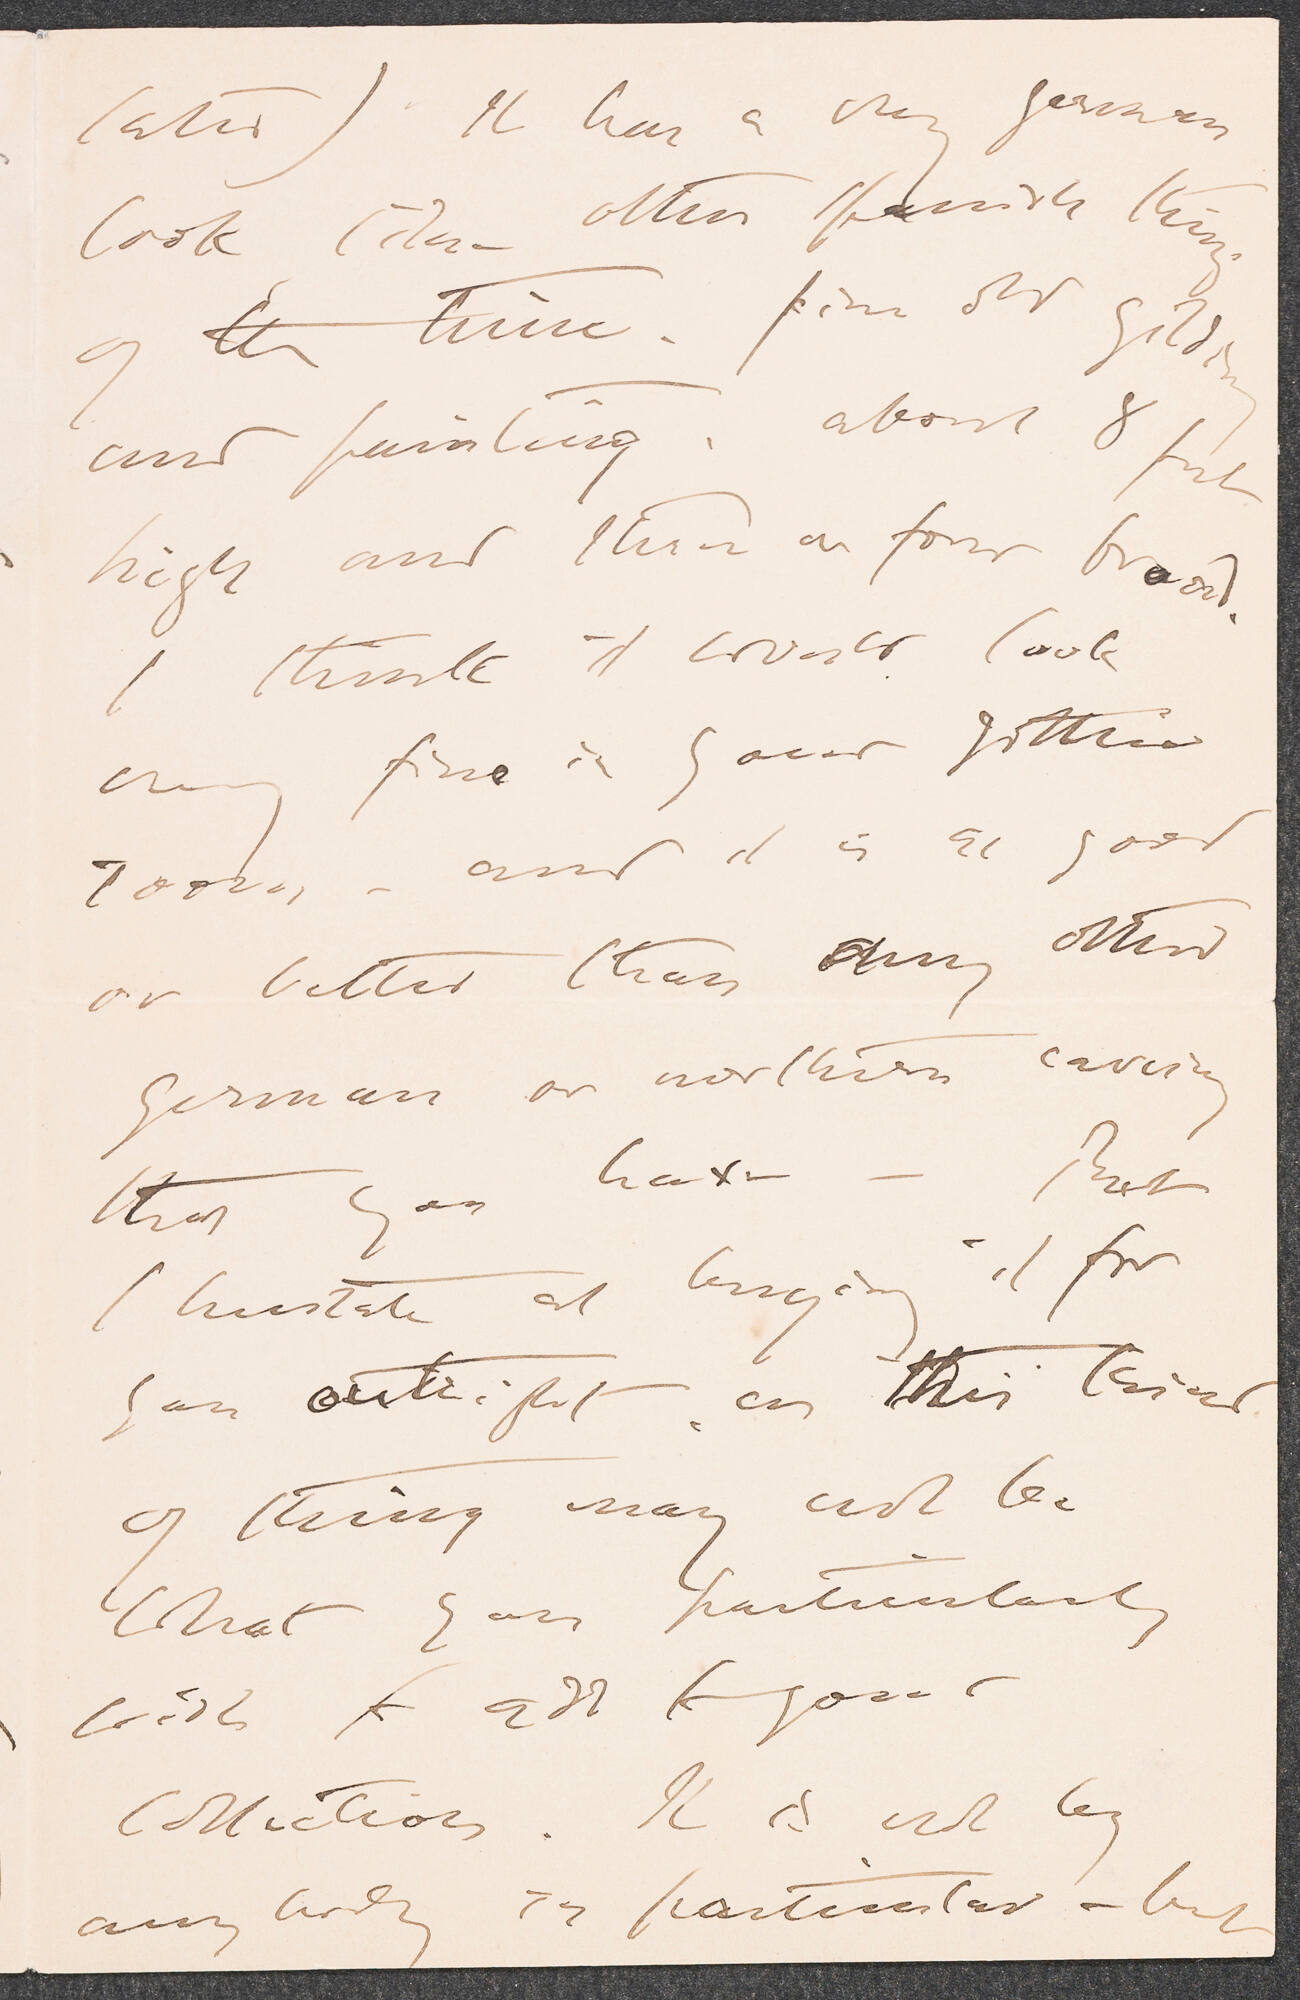 later) It has a very german
look like other spanish things
of the time. fine old gilding
and painting. about 8 feet
high and three or four broad.
I think it would look
very fine in your gothic
room - and it is as good
or better than any other
german or northern carving
that you have - But
I hesitate at buying it for
you outright, as this kind
of thing may not be
what you particularly
wish to add to your
collection. It is not by
any body in particular - but